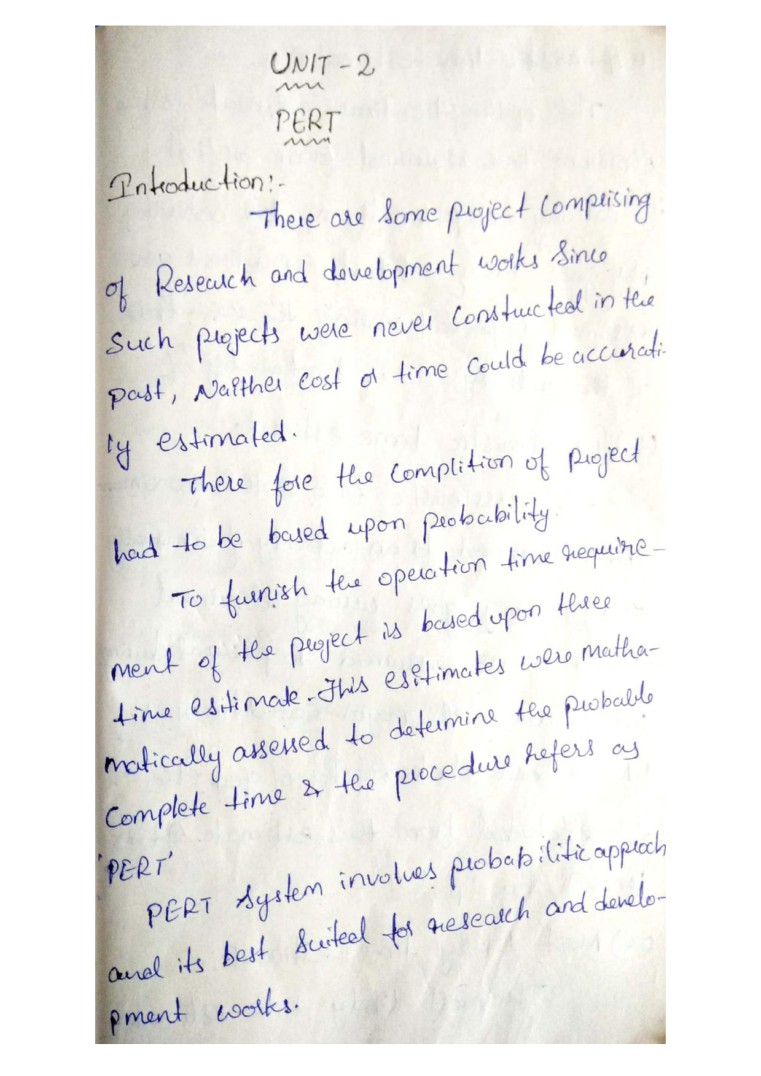 UNIT - 2
PERT
Introduction:-
There are some project Comprising
of Research and development works Since
Such projects were never constructed in the
past, Naither cost or time could be accurati-
ly estimated.
There fore the complition of project
had to be based upon probability.
To furnish the operation time require-
ment of the project is based upon three
time estimate. This esitimates were matha-
matically assessed to determine the probable
Complete time & the procedure refers as
'PERT'
PERT System involves probabilitic approch
and its best suited for research and develo-
pment works.